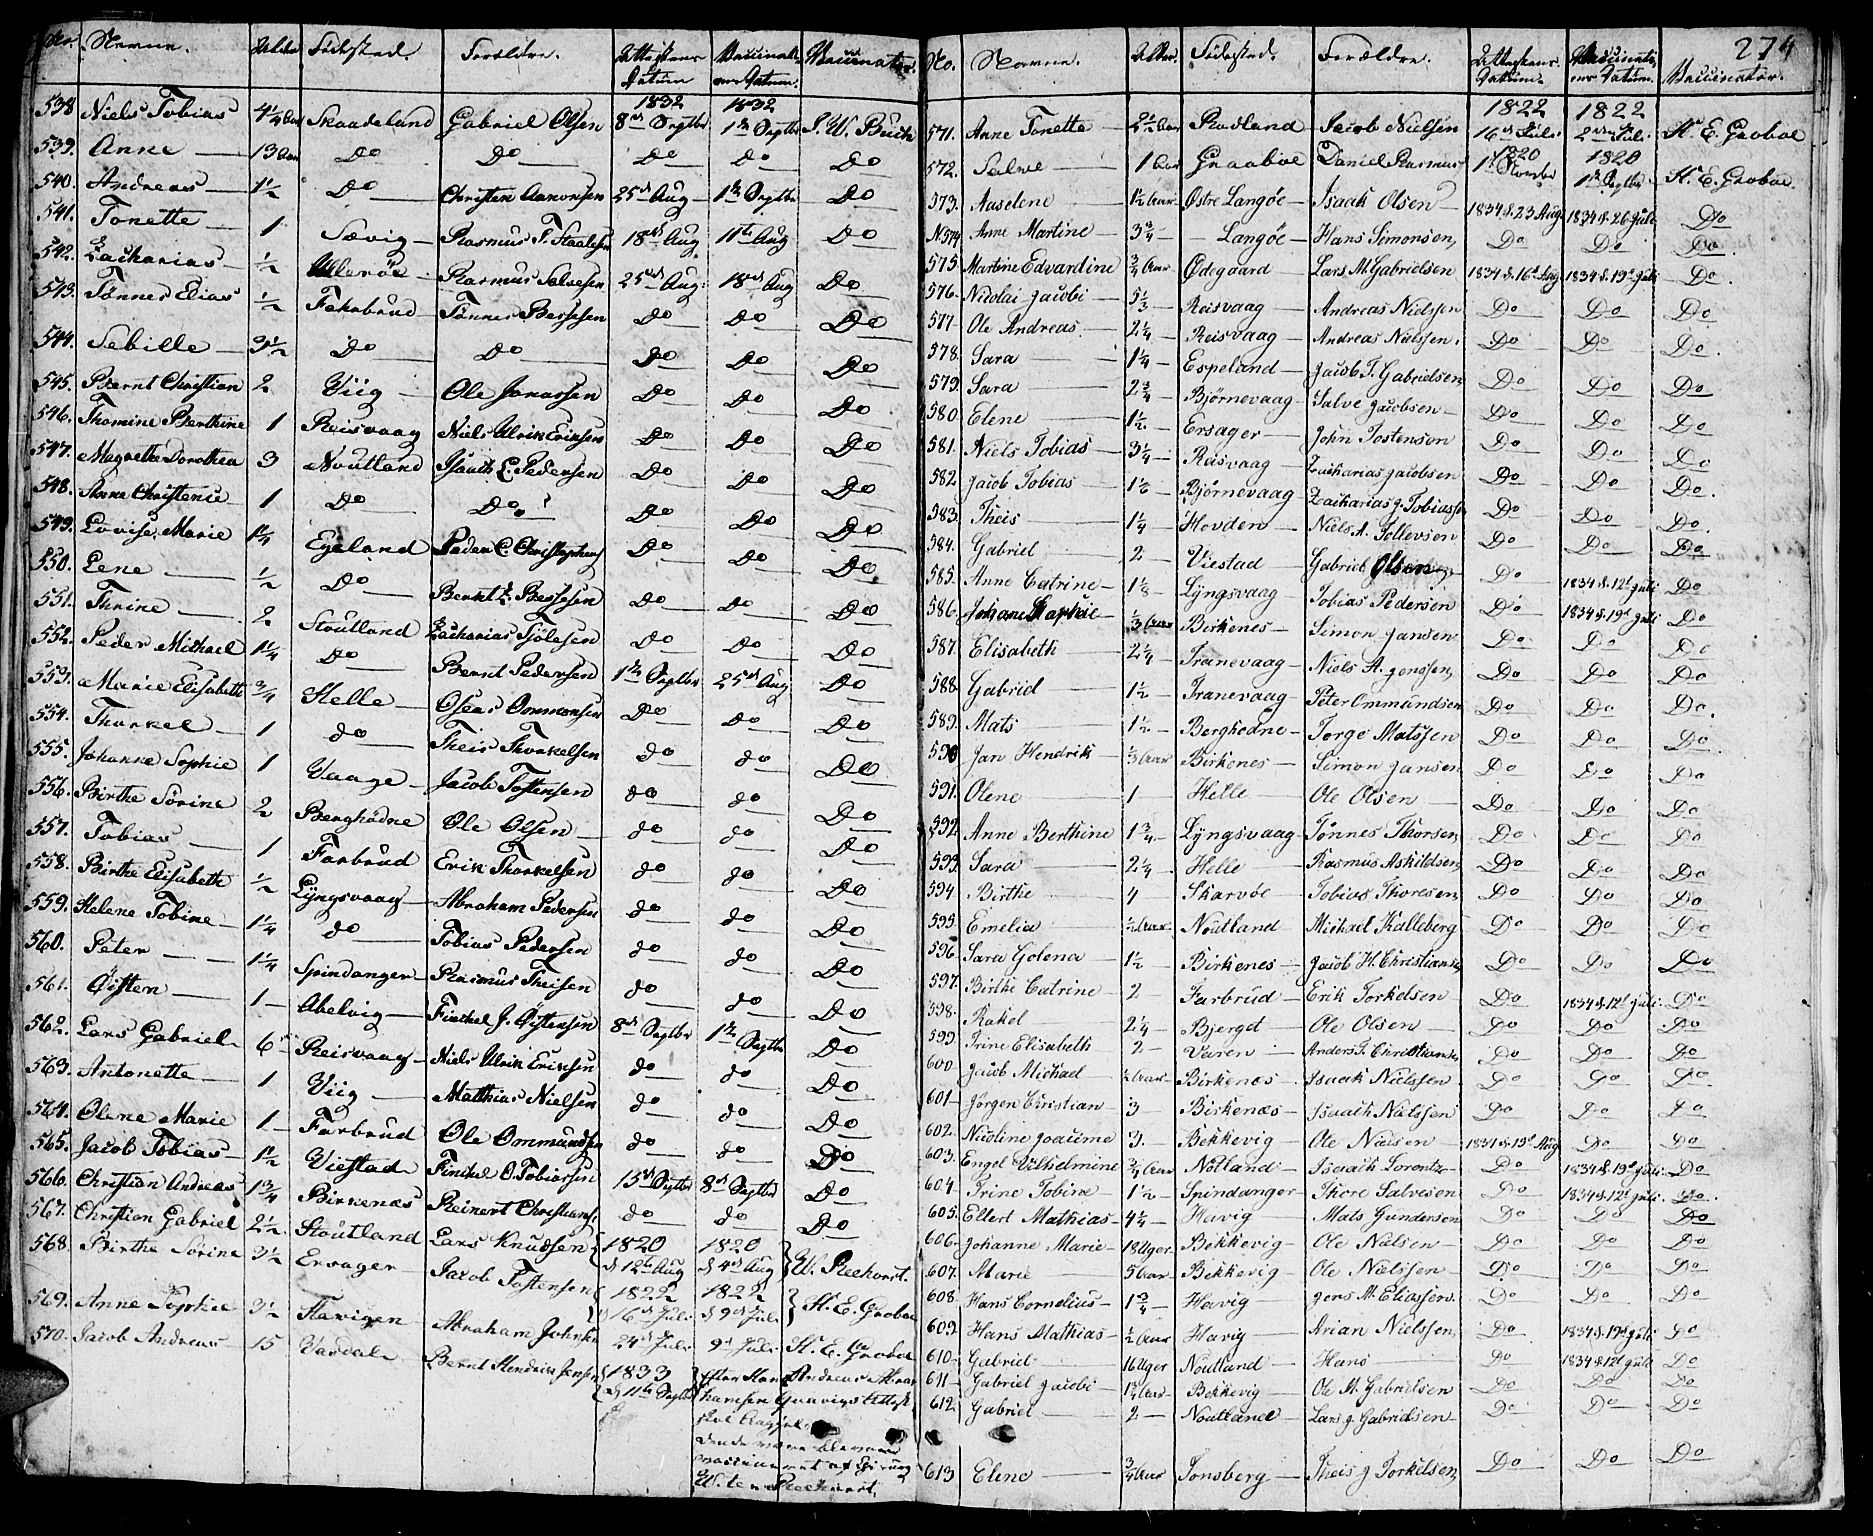 No. Navne. Alder Födested. Forældre. Attestens Datum Vaccinationens Datum. Vaccinator.
538 Niels Tobias 4¼ Aar Skaadeland Gabriel Olsen 1832 8de Septbr 1832 1te Septbr
539. Anne 13 Aar Do Do Do Do Do
540. Andreas 1½ Do Christen Aanonsen 25de Aug 1te Septbr Do
541. Tonette 1 Sævig Rasmus T. Staalesen 18de Aug 11te Aug Do
542. Zacharias ½ Ulleröe Rasmus Salvesen 25de Aug: 18de Aug Do
543. Tönnes Elias ½ Farbrud Tönnes Berssen Do Do Do
544. Sebille 3½ Do Do Do Do Do
545. Bernt Christian 2 Viig Ole Janassen Do Do Do
546. Thomine Berthine 1 Reisvaag Niels Ulrik Eriksen Do Do Do
547. Magrethe Dorothea 3 Noutland Isaach L. Pedersen Do Do Do
548. Anne Christence 1 Do Do Do Do Do
549. Lovise Marie 1¼ Egeland Peder C. Christophers Do Do Do
550. Lene ½ Do Berent Do Do Do
551. Thrine 2 Stoutland Zacharias Tjölesen Do Do Do
552. Peder Michael 1¼ Do Bernt Pedersen 1te Septbr 25de Aug Do
553. Marie Elisabeth ¾ Helle Oseas Ommonsen Do Do Do
554. Thorkel 1 do Theis Thorkelsen do do Do
555. Johanne Sophie 1 Vaage Jacob Tostensen do do Do
556. Birthe Sörine 2 Berghödne Ole Olsen do do Do
557. Tobias 1 Farbrud Erik Thorkelsen do do Do
558. Birthe Elisabeth ½ Lyngsvaag Abraham Pedersen do do Do
559. Helene Tobine 1¼ do Tobias Pedersen do do Do
560. Peter 1¼ Spindanger Rasmus Theisen do do Do
561. Östen 1 Abelvig Finckel J. Östensen 8de Septbr 1te Septbr Do
562. Lars Gabriel 6 Reisvaag Niels Ulrik Eriksen do do Do
563. Antonette 1 Viig Matthias Nielsen do do Do
564. Olene Marie 1 Farbrud Ole Ommundsen do do Do
565. Jacob Tobias 1½ Viestad Finckel O. Tobiassen 15de Septbr 8de Septbr Do
566. Christian Andreas 1¾ Birkenæs Reinert Christians: do do Do
567. Christian Gabriel 2½ Stoutland Lars Knudsen 1820 d 12te Aug 1820 d 4de Aug W. Reehorst.
568. Birthe Sörine 3½ Ersager Jacob Tostensen 1822 16de Juli 1822 d 9de Juli H. E. Groboe
569. Anne Sophie 3½ Havigen Abraham Johnsen 24de Juli 9de Juli H. E. Groboe
570. Jacob Andreas 15 Vardal Bernt Hendrik Jensen 1833 d 11te Septbr Andreas
274
No. Navne. Alder. Födested. Forældre. Attestens Datum. Vaccinationens Datum. Vaccinator.
571. Anne Tonette 2½ Aar Rodland Jacob Nielsen 1822 16de Juli 1822 2den Juli H. E. Groboe
572. Salve 1 Aar Graaboe Daniel Rasmus 1820 1820 1te Septbr H. E. Groboe.
573. Aaselene 1½ Aar Østre Langöe Isaak Olsen 1834 d. 23 Aug 1834 d. 26 Juli Do
N574 Anne Martine 3¾ Langöe Hans Simonsen Do Do Do
575. Martine Edvardine ¾ Aar Ødegaard Lars M. Gabrielsen 1834 d. 16d Aug 1834 d. 19d Juli Do
576. Nicolai Jacobi 5⅓ Reisvaag Andreas Nielssen Do Do Do
577. Ole Andreas 2¼ Reisvaag Andreas Nielssen Do Do Do
578. Sara 1¼ Espeland Jacob T. Gabrielsen Do Do Do
579. Sara 2¾ Björnevaag Salve Jacobsen Do Do Do
580. Elene 1½ Ersager John Tostenson Do Do Do
581. Niels Tobias 3¼ Räsvaag Zacharias Jacobsen Do Do Do
582. Jacob Tobias 1⅙ Björnevaag Zacharias J. Tobiassen Do Do Do
583. Theis 1¼ Hovden Niels A. Tollevsen Do Do Do
584. Gabriel 2 Viestad Gabriel Olsen Do 1834 d. 12d Juli Do
585. Anne Catrine 1⅛ Lyngsvaag Tobias Pedersen Do 1834 d. 19d Juli Do
586. Johane Sophie ⅓ Aar Birkenes Simon Jansen Do Do Do
587. Elisabeth 2¼ Tranevaag Niels A. Jenssen Do Do Do
588. Gabriel 1½ Tranevaag Peter Ommundsen Do Do Do
589. Mats 1½ Berghödne Torge Matssen Do Do Do
590 Jan Hendrik ⅓ Aar Birkenes Simon Jansen Do Do Do
591. Olene 1 Helle Ole Olsen Do Do Do
592. Anne Berthine 1¾ Lyngsvaag Tönnes Thorsen Do Do Do
593. Sara 2¼ Helle Rasmus Askildsen Do Do Do
594. Birthe 4 Skarvöe Tobias Thoresen Do Do Do
595. Emelia ½ Aar Noutland Michael Kalleberg Do Do Do
596. Sara Golena 1½ Birkenes Jacob H. Christianse Do Do Do
597. Birthe Catrine 2 Farbrud Erik Torkelsen Do 1834 d. 12d Juli Do
598. Rakel 2¼ Bjerget Ole Olsen Do Do Do
599. Trine Elisabeth 2 Varen Anders T. Christianse Do Do Do
600. Jacob Michael ½ Aar Birkenes Isaak Nielssen Do Do Do
601 Jörgen Christian 3 Birkenæs Isaach Nielssen Do Do Do
602. Nicoline Joacime 3. Bekkevig Ole Nielsen 1834 d. 19d Aug Do Do
603. Engel Vilhelmine ¾ Aar Notland Isaach Lorentz Do 1834 d. 19d Juli Do
604. Trine Tobine 1½ Spindanger Thore Salvesen Do 1834 d. 12d Juli Do
605. Ellert Mathias 4¼ Havig Mats Gundersen Do Do Do
606. Johanne Marie 18 Uger Bekkevig Ole Nielsen Do Do Do
607. Marie 5 Aar Bekkevig Ole Nielssen Do Do Do
608. Hans Cornelius 1¾ Havig Jens M. Eliassen Do Do Do
609. Hans Mathias ½ Aar Havig Arian Nielssen Do 1834 d. 19d Juli Do
610. Gabriel 16 Uger Noutland Hans Do 1834 d. 12d Juli Do
611. Gabriel Jacobi 1¾ Aar Bekkevig Ole M. Gabrielsen Do Do Do
612. Gabriel 2 Noutland Lars J. Gabrielsen Do Do Do
613 Elene ¾ Aar Tonsberg Theis J Torkelsen Do Do Do